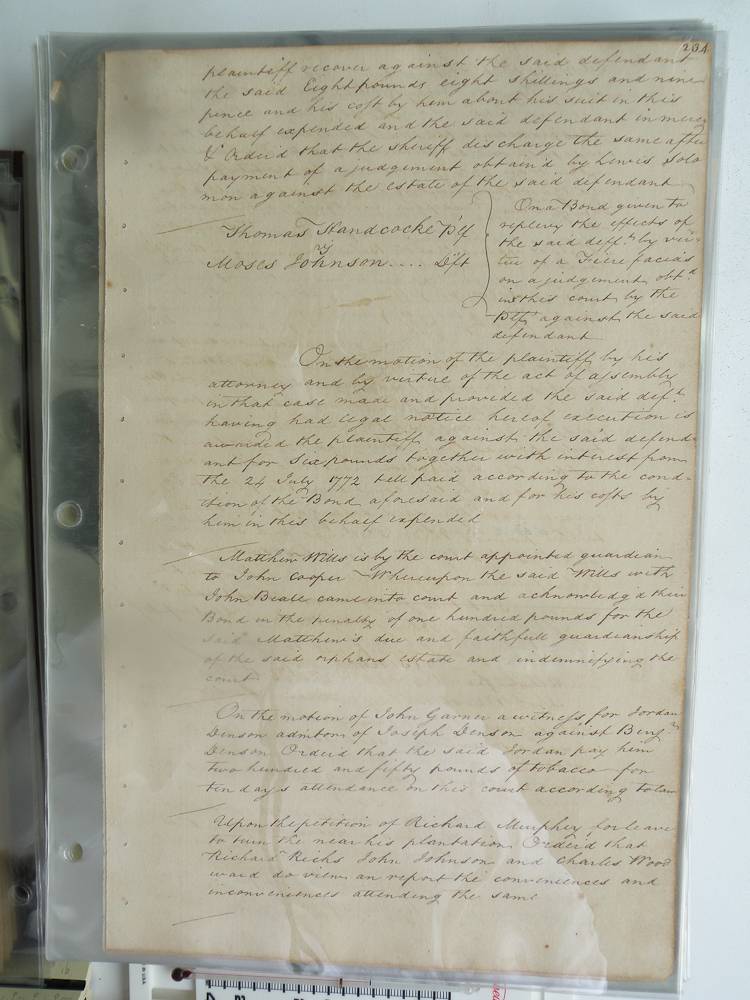 234
plaintiff recover against the said defendant
the said Eight pounds eight shillings and nine
pence and his cost by him about his suit in this
behalf expended and the said defendant in mercy
& Orderd that the sheriff discharge the same after
payment of a judgement obtain'd by Lewis Solo
mon against the estate of the said defendant
Thomas Handcocke Plf
vs
Moses Johnson .... Dft
On a Bond given to
replevy the effects of
the said defft. by vir
tue of a Fiere facias
on a judgement obtd
in this court by the
Pltf against the said
defendant
On the motion of the plaintiff by his
attorney and by virtue of the act of assembly
in that case made and provided the said deft.
having had legal notice hereof execution is
awarded the plaintiff against the said defend
ant for Six pounds together with interest from
the 24 July 1772 till paid according to the cond=
ition of the Bond aforesaid and for his costs by
him in this behalf expended
Matthew Wills is by the court appointed guardian
to John Cooper Whereupon the said Wills with
John Beale came into court and acknowledgd their
Bond in the penalty of one hundred pounds for the
said Matthew's due and faithfull guardianship
of the said orphans estate and indemnifying the
court
On the motion of John Garner a witness for Jordan
Denson admtor of Joseph Denson against Benjn
Denson Orderd that the said Jordan pay him
two hundred and fifty pounds of tobacco for
ten days attendance on this court according to law
Upon the petition of Richard Murphey for leave
to turn the near his plantation Orderd that
Richard Ricks John Johnson and Charles Wood
ward do view an report the conveniences and
inconveniences attending the same